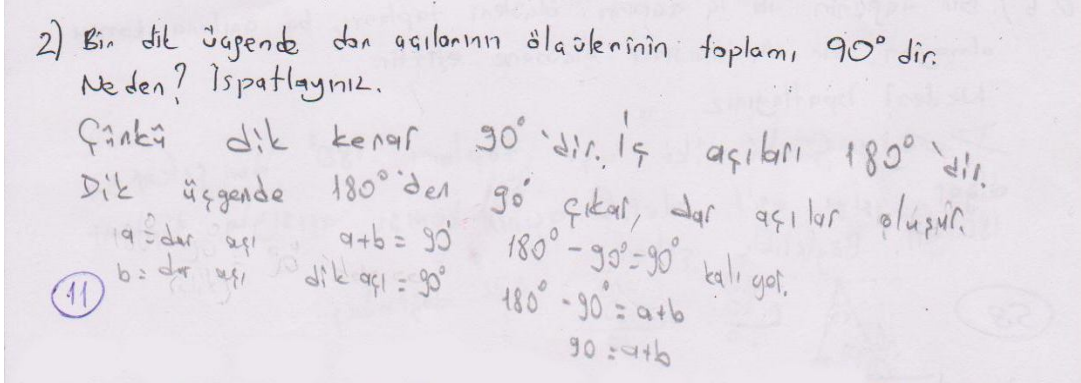 2) Bir dik üçgende dar açılarının ölçülerinin toplamı 90° dir.
Neden? İspatlayınız.
Çünkü dik kenar 90° 'dir. İç açıları 180° 'dir.
Dik üçgende 180° 'den 90° çıkar, dar açılar oluşur.
a = dar açı a+b = 90° 180° - 90° = 90° kalıyor.
b = dar açı dik açı = 90° 180° - 90° = a+b
11
90 = a+b